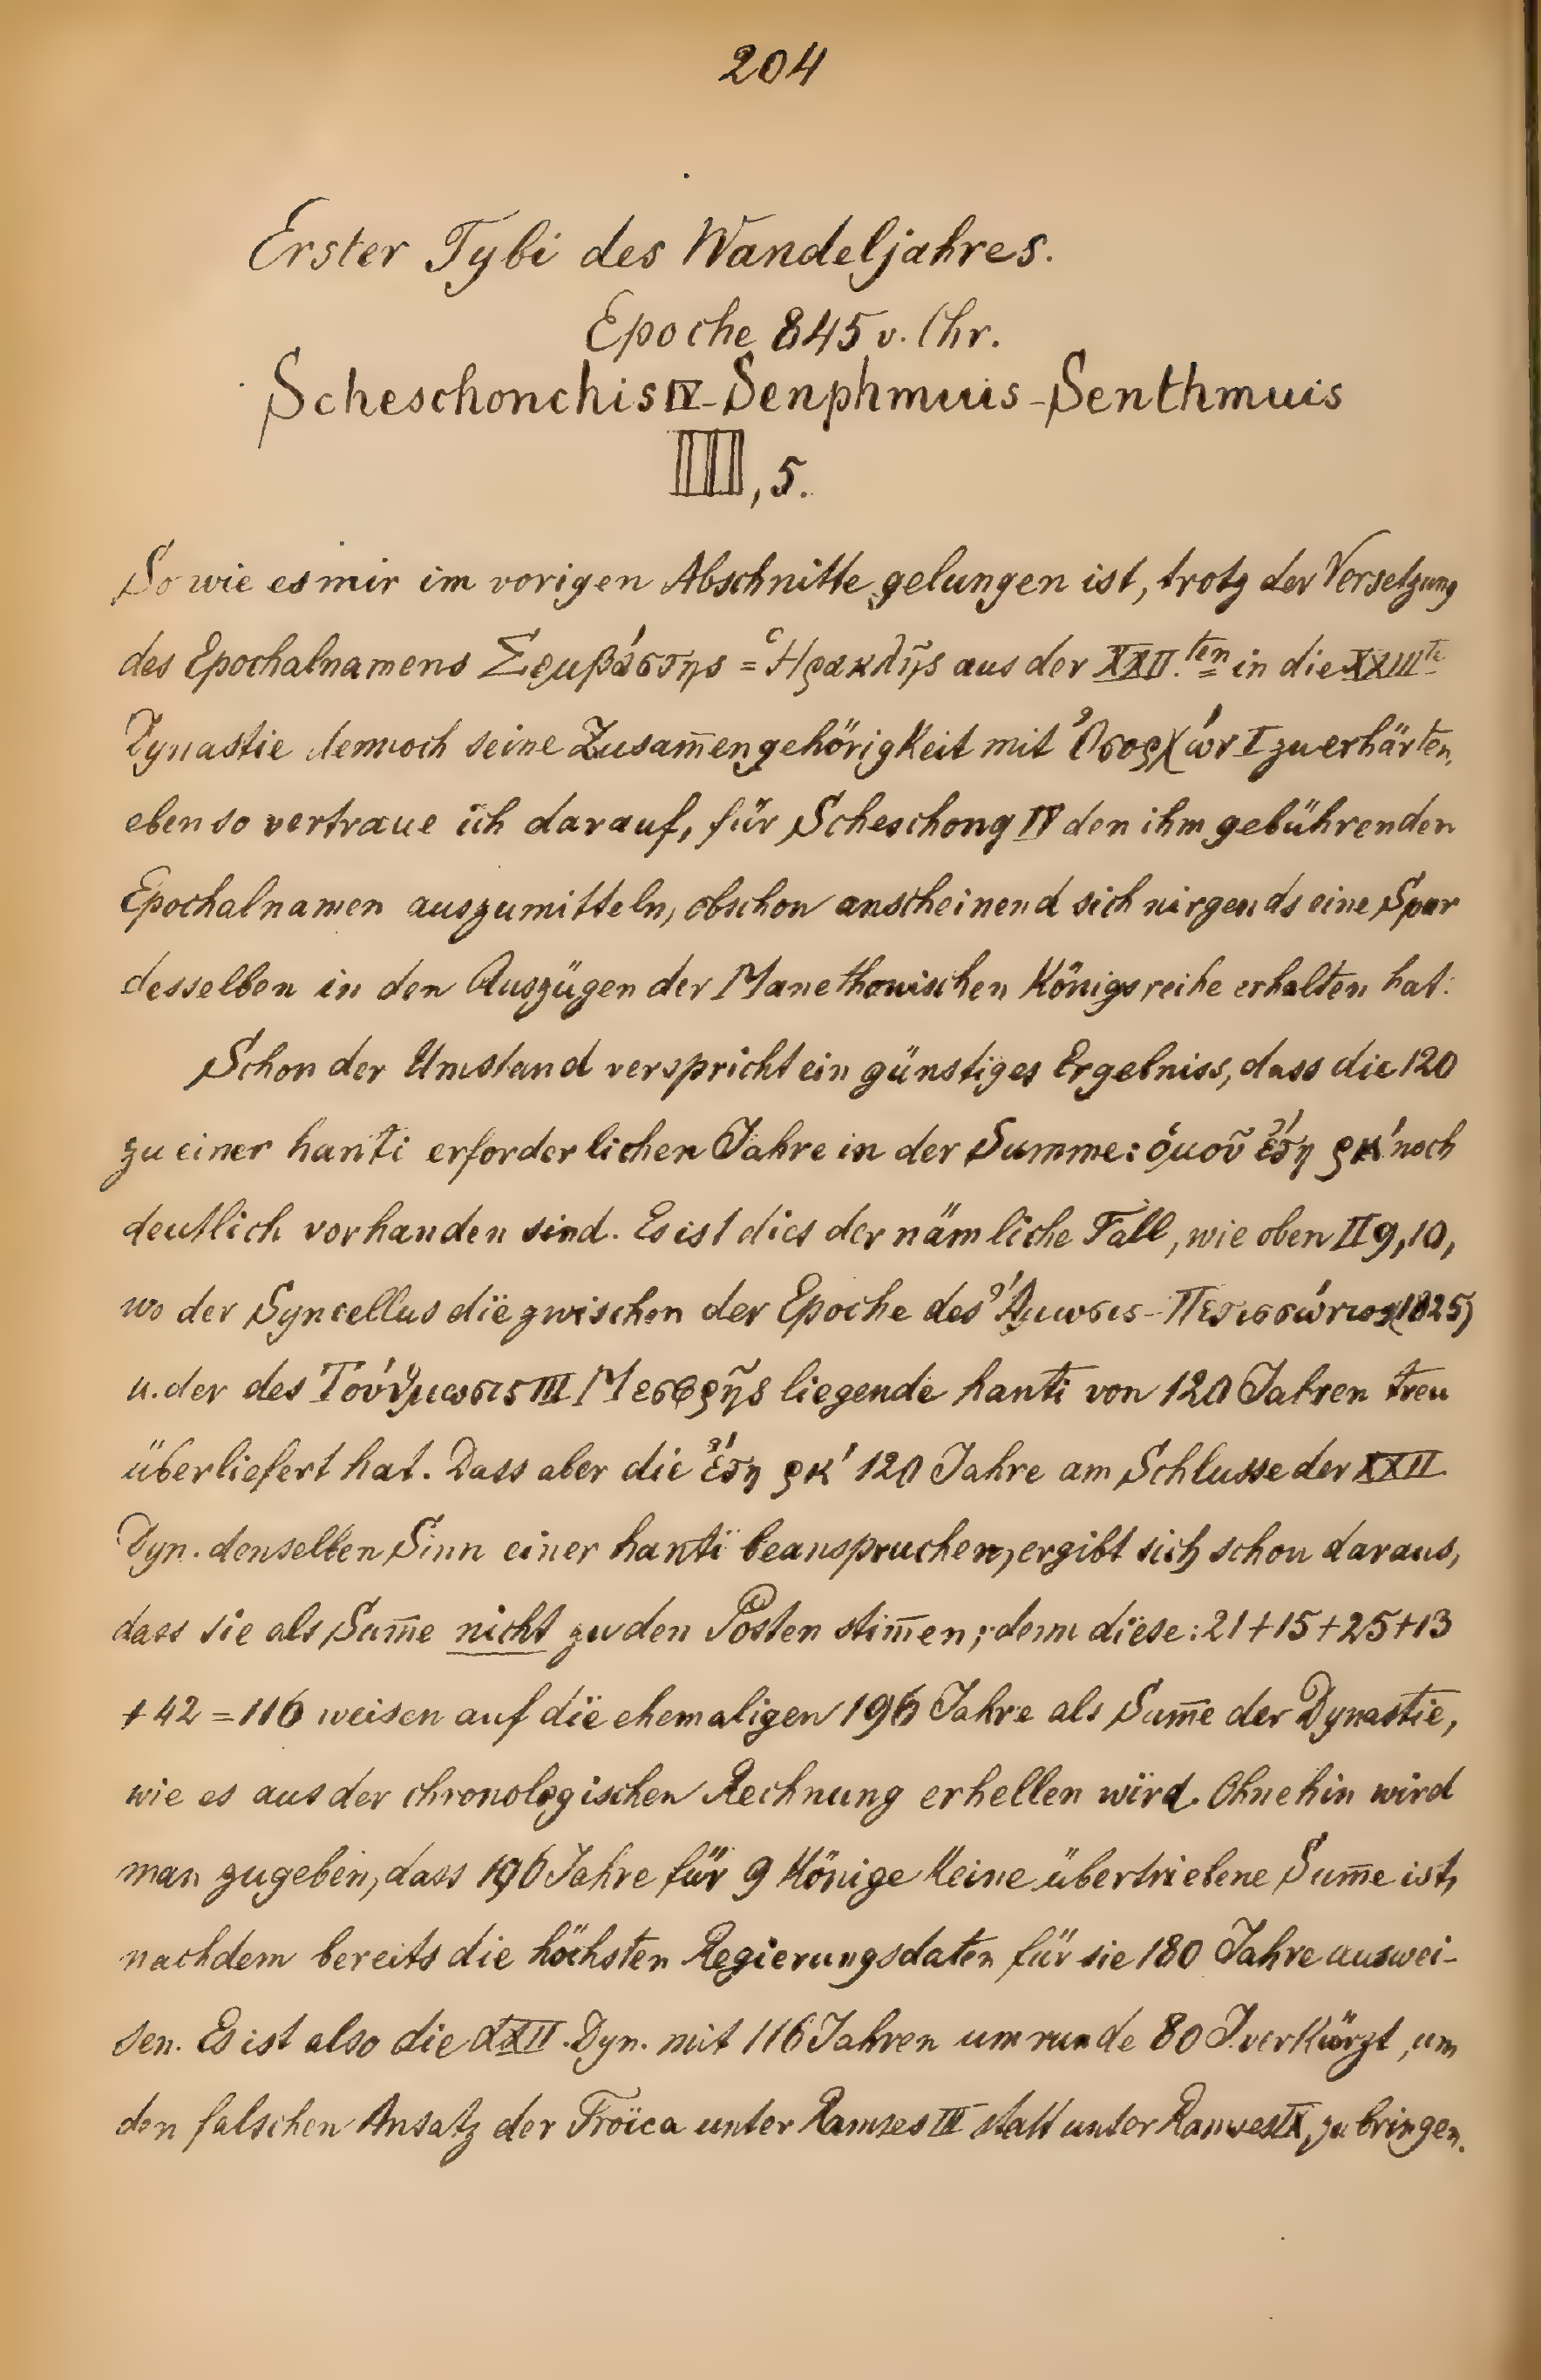 204
Erster Tybi des Wandeljahres.
Epoche 845 v. Chr.
Scheschonchis IV-Senphmuis-Senthmuis
IIII, 5.
So wie es mir im vorigen Abschnitte gelungen ist, trotz der Versetzung
des Epochalnamens Σεμβάστης = Ἡρακλῆς aus der XXII.ten in die XXIIIte
Dynastie dennoch seine Zusam̄engehörigkeit mit Ὀσορχών I zu erhärten,
ebenso vertraue ich darauf, für Scheschonq IV den ihm gebührenden
Epochalnamen auszumitteln, obschon anscheinend sich nirgends eine Spur
desselben in den Auszügen der Manethonischen Königsreihe erhalten hat.
Schon der Umstand verspricht ein günstiges Ergebniss, dass die 120
zu einer hanti erforderlichen Jahre in der Summe: ὁμοῦ ἔτη ρκ' noch
deutlich vorhanden sind. Es ist dies der nämliche Fall, wie oben II 9, 10,
wo der Syncellus die zwischen der Epoche des Ἄμωσις- (1825)
u. der des III Μεσφρῆς liegende hanti von 120 Jahren treu
überliefert hat. Dass aber die ἔτη ρκ' 120 Jahre am Schlusse der XXII
Dyn. denselben Sinn einer hanti beanspruchen, ergibt sich schon daraus,
dass sie als Sum̄e nicht zu den Posten stim̄en; denn diese: 21+15+25+13
+42=116 weisen auf die ehemaligen 196 Jahre als Sum̄e der Dynastie,
wie es aus der chronologischen Rechnung erhellen wird. Ohnehin wird
man zugeben, dass 196 Jahre für 9 Könige keine übertriebene Sum̄e ist,
nachdem bereits die höchsten Regierungsdaten für sie 180 Jahre auswei-
sen. Es ist also die XXII. Dyn. mit 116 Jahren um runde 80 J. verkürzt, um
den falschen Ansatz der Troïca unter Ramses III statt unter Ramses IX, zu bringen.